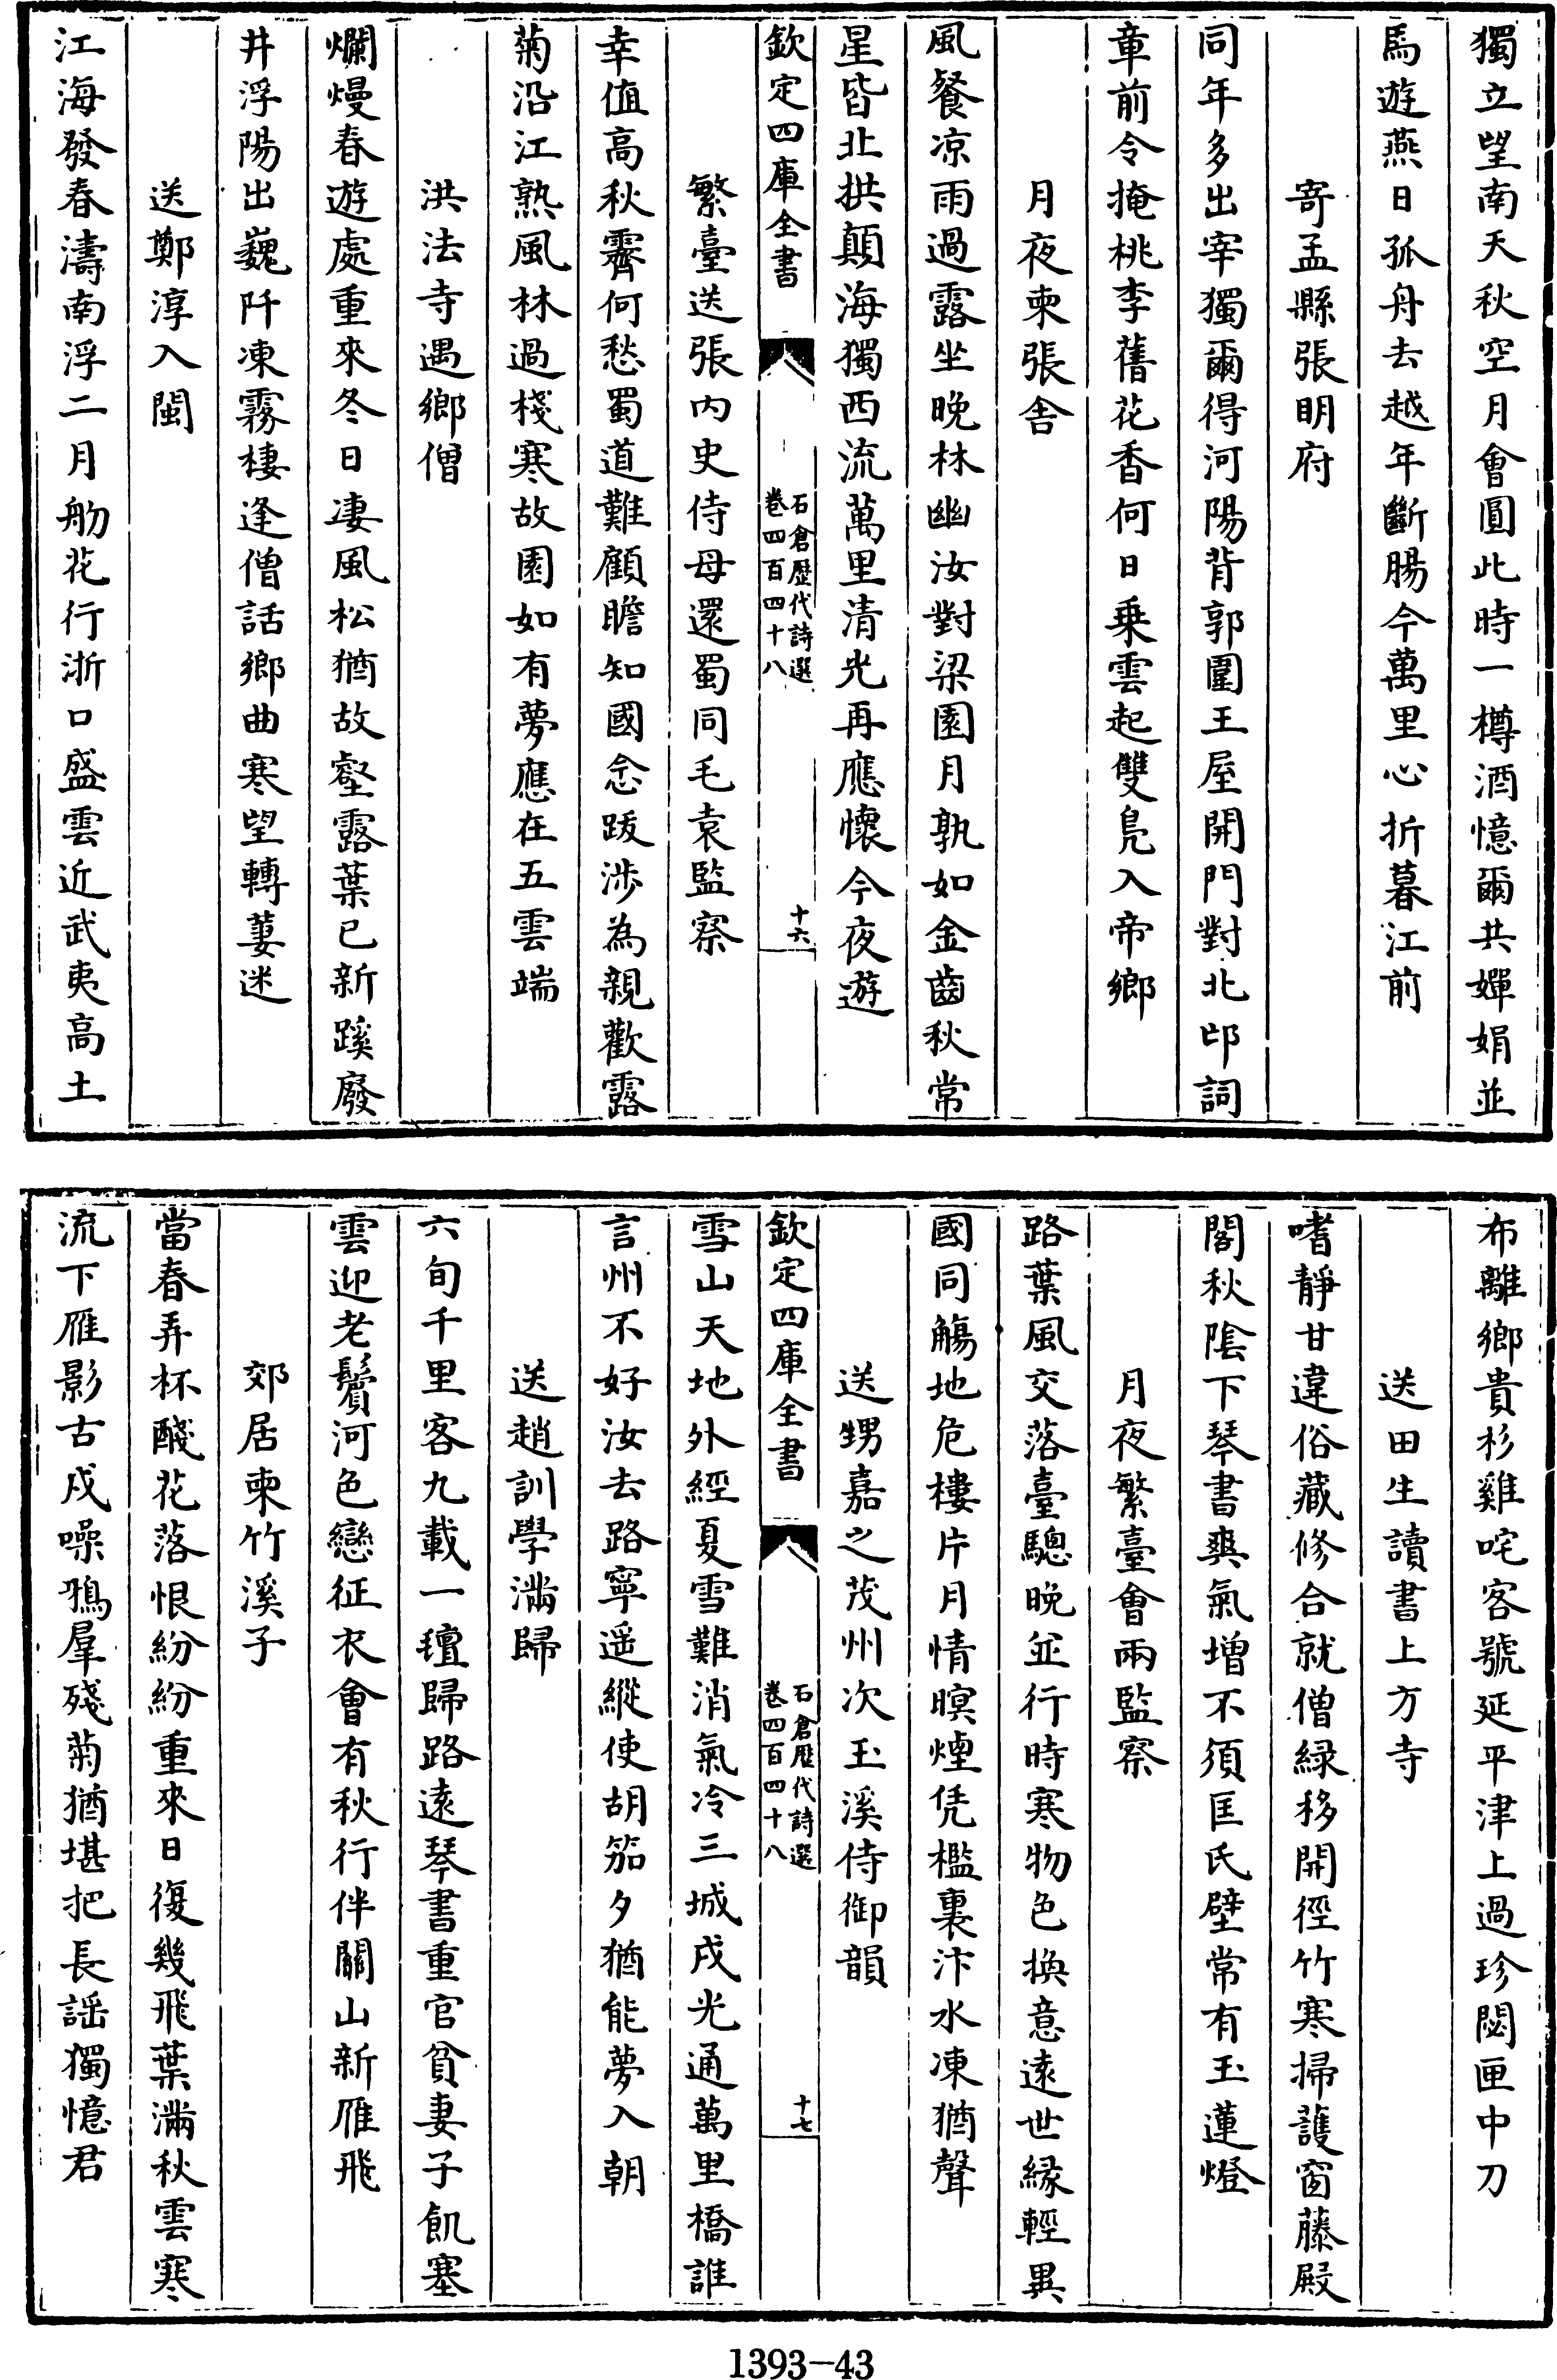 獨立望南天秋空月會圓此時一樽酒憶爾共嬋娟並
馬遊燕日孤舟去越年斷腸今萬里心折暮江前
寄孟縣張明府
同年多出宰獨爾得河陽背郭圍王屋開門對北邙詞
章前令掩桃李舊花香何日乗雲起雙鳬入帝鄉
月夜柬張舍
風餐凉雨過露坐晚林幽汝對梁園月孰如金齒秋常
星皆北拱顛海獨西流萬里清光再應懷今夜遊
欽定四庫全書
石倉歴代詩選
卷四百四十八
十六
繁臺送張内史侍母還蜀同毛袁監察
幸值高秋霽何愁蜀道難顧瞻知國念跋涉為親歡露
菊沿江熟風林過棧寒故園如有夢應在五雲端
洪法寺遇鄉僧
爛熳春遊處重來冬日凄風松猶故壑露葉已新蹊廢
井浮陽出巍阡凍霧棲逢僧話鄉曲寒望轉萋迷
送鄭淳入閩
江海發春濤南浮二月舠花行浙口盛雲近武夷高土
布離鄉貴杉雞咤客號延平津上過珍閟匣中刀
送田生讀書上方寺
嗜靜甘違俗藏修合就僧緑移開徑竹寒掃護窗藤殿
閣秋陰下琴書爽氣增不須匡氏壁常有玉蓮燈
月夜繁臺會兩監察
路葉風交落臺驄晚並行時寒物色換意遠世緣輕異
國同觴地危樓片月情暝煙凭檻裏汴水凍猶聲
送甥嘉之茂州次玉溪侍御韻
欽定四庫全書
石倉歴代詩選
卷四百四十八
十七
雪山天地外經夏雪難消氣冷三城戍光通萬里橋誰
言州不好汝去路寧遥縱使胡笳夕猶能夢入朝
送趙訓學滿歸
六旬千里客九載一壇歸路遠琴書重官貧妻子飢塞
雲迎老鬢河色戀征衣會有秋行伴關山新雁飛
郊居柬竹溪子
當春弄杯醆花落恨紛紛重來日復幾飛葉滿秋雲寒
流下雁影古戍噪鴉羣殘菊猶堪把長謡獨憶君
1393-43